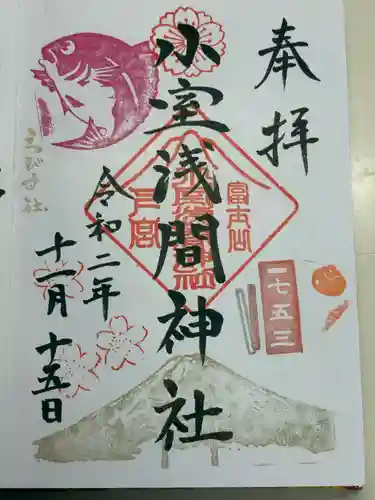 奉拝
小室浅間神社
令和二年
十一月十五日
ゑびす社
富士山
三宮
一七五三